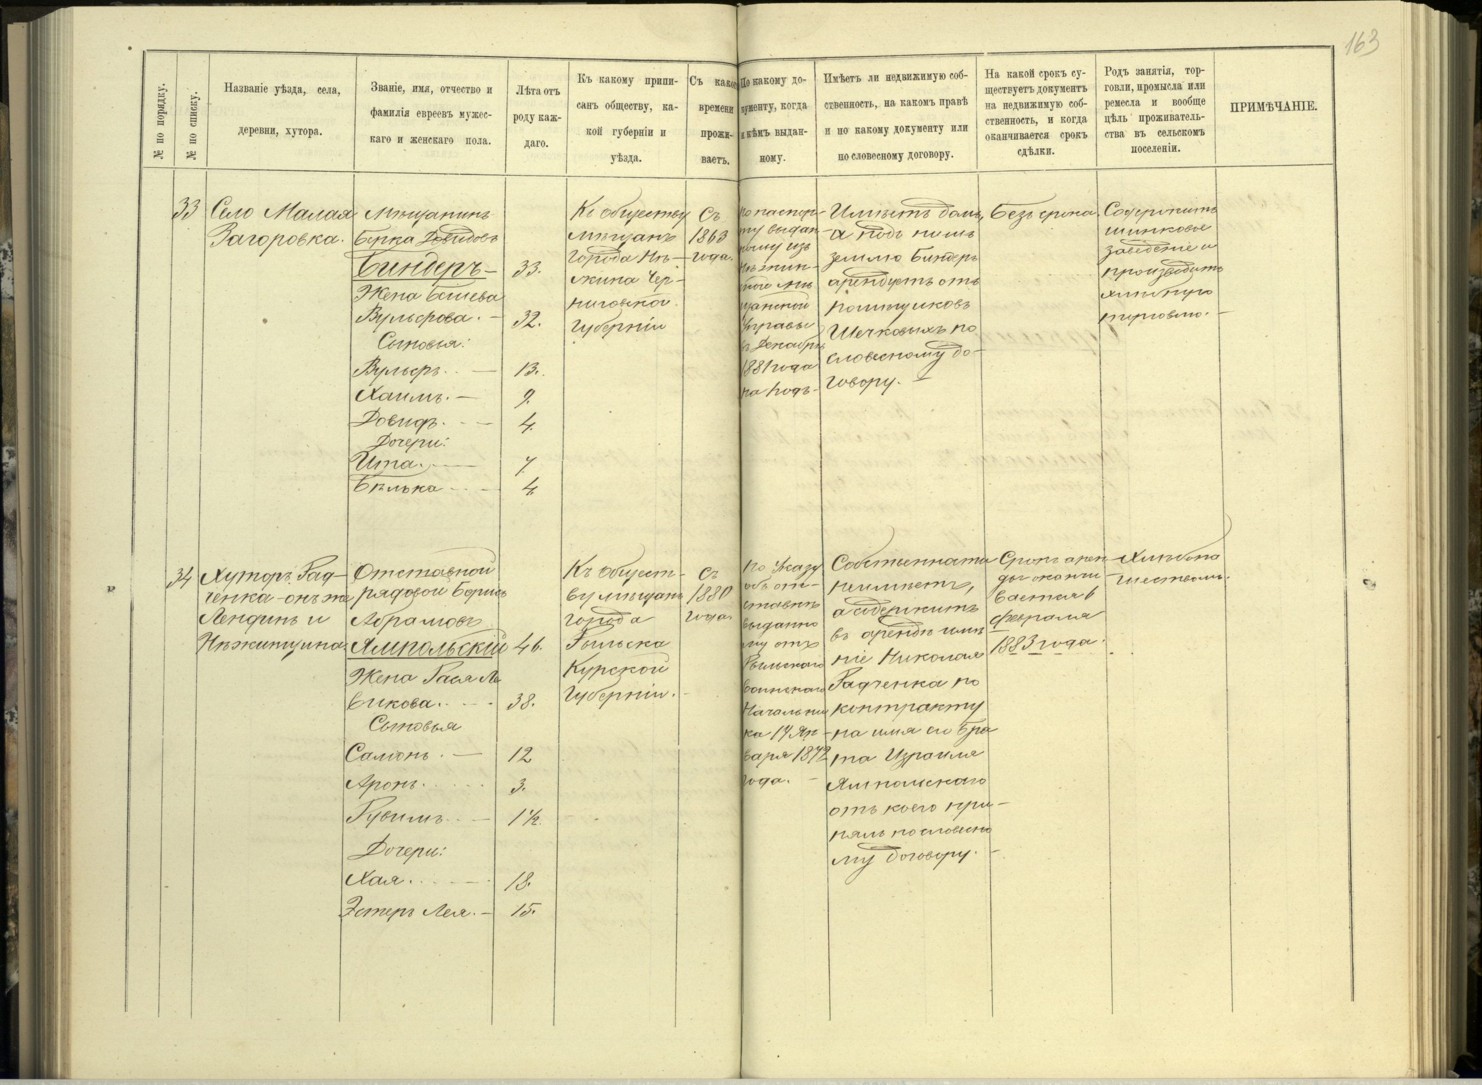 163
№ по порядку.
№ по списку.
Названіе уѣзда, села,
деревни, хутора.
Званіе, имя, отчество и
фамилія евреевъ мужес-
каго и женскаго пола.
Лѣта отъ
роду каж-
даго.
Къ какому припи-
санъ обществу, ка-
кой губерніи и
уѣзда.
Съ какого
времени
прожи-
ваетъ.
По какому до-
кументу, когда
и кѣмъ выдан-
ному.
Имѣетъ ли недвижимую соб-
ственность, на какомъ правѣ
и по какому документу или
по словесному договору.
На какой срокъ су-
ществуетъ документъ
на недвижимую соб-
ственность, и когда
оканчивается срокъ
сдѣлки.
Родъ занятія, тор-
говли, промысла или
ремесла и вообще
цѣль проживатель-
ства въ сельскомъ
поселеніи.
ПРИМѢЧАНІЕ.
33
Село Малая
Загоровка.
Мѣщанинъ
Берка Довидовъ
Биндеръ —
33.
Жена Башева
Вульфова. —
32.
Сыновья:
Вульфъ. . —
13.
Хаимъ. —
9.
Довидъ. . —
4.
Дочери:
Ита. —
7
Бѣлька . . —
4.
Къ обществу
мѣщанъ
города Нѣ-
жина Чер-
ниговской
Губерніи
Съ
1863
года.
По паспор-
ту выдан-
ному изъ
Нѣжин-
ской мѣ-
щанской
Управы
въ Декабрѣ
1881 года
на годъ-
Имѣетъ домъ,
а подъ нимъ
землю Биндеръ
арендуетъ отъ
помѣщиковъ
по
словесному до-
говору. —
Безъ срока
Содержитъ
шинковое
заведеніе и
производитъ
хлѣбную
торговлю. —
34
Хуторъ Рад-
ченка - онъ же
и
Нѣжинщина
Отставной
рядовой Борисъ
Абрамовъ
Ямпольскій
46.
Жена Гася
38.
Сыновья
12
Аронъ. . . .
3.
Рувимъ. . —
1½.
Дочери:
Хая. . . — .
18.
Эстеръ Лея. —
15.
Къ общест-
ву мѣщанъ
города
Рыльска
Курской
Губерніи. -
Съ
1880
года
По Указу
объ от-
ставкѣ
выданно
му отъ
Рыльскаго
Воинскаго
Начальни
ка 17 Ян-
варя 1872
года. —
Собственности
неимѣетъ,
а содержитъ
въ арендѣ имѣ
ніе Николая
Радченка по
контракту
на имя его бра
та Израиля
Ямпольскаго
отъ коего при-
нялъ по словесно
му договору. —
Срокъ арен
ды оканчи
вается въ
февралѣ
1883 года.
Хлѣбопа
шествомъ.